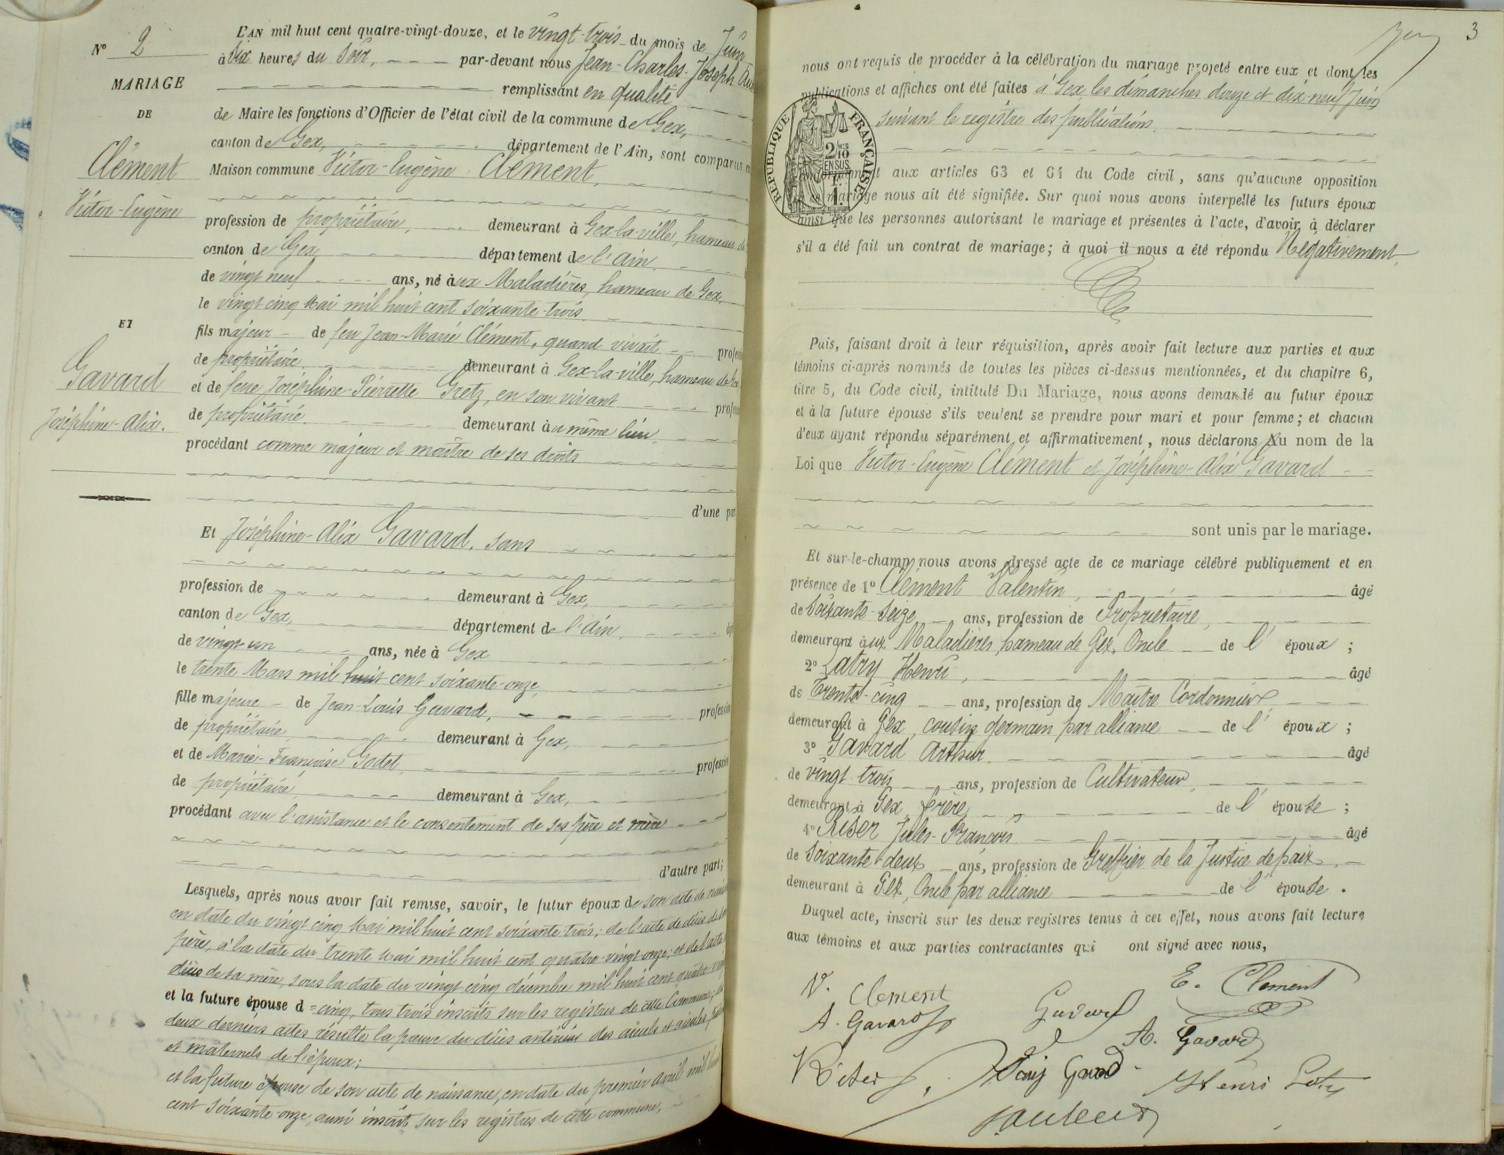 N° 2
MARIAGE
DE
Clément
Victor-Eugène
ET
Gavard
Joséphine-Alix.
L'AN mil huit cent quatre-vingt-douze, et le vingt-trois du mois de Juin
à six heures du Soir, par-devant nous Jean-Charles-Joseph
remplissant en qualité
de Maire les fonctions d'Officier de l'état civil de la commune de Gex,
canton de Gex, département de l'Ain, sont comparus
Maison commune Victor-Eugène Clément,
profession de propriétaire, demeurant à Gex-la-ville, hameau de
canton de Gex, département de l'Ain
de vingt neuf ans, né aux Maladières, hameau de Gex,
le vingt cinq Mai mil huit cent soixante-trois
fils majeur de feu Jean-Marie Clément, quand vivait
de propriétaire demeurant à Gex-la-ville, hameau de Gex
et de feue Joséphine-Pierrette Gretz, en son vivant
de propriétaire demeurant au même lieu
procédant comme majeur et maître de ses droits
d'une par
Et Joséphine-Alix Gavard, sans
profession de demeurant à Gex,
canton de Gex, département de l'Ain,
de vingt un ans, née à Gex
le trente Mars mil huit cent soixante-onze,
fille majeure de Jean-Louis Gavard, profession
de propriétaire demeurant à Gex,
et de Marie-Françoise Godet profession
de propriétaire demeurant à Gex,
procédant avec l'assistance et le consentement de ses père et mère
d'autre part;
Lesquels, après nous avoir fait remise, savoir, le futur époux de son acte de
en date du vingt cinq Mai mil huit cent soixante trois; de l'acte de décès de son
père, à la date du trente Mai mil huit cent quatre vingt onze; et de l'acte
décès de sa mère, sous la date du vingt cinq décembre mil huit cent quatre
et la future épouse d = cinq, tous trois inscrits sur les registres de cette Commune;
deux derniers actes résulte la preuve du décès antérieur des aïeuls et aïeules
et maternels de l'époux;
et la future épouse de son acte de naissance, en date du premier Avril mil
cent soixante onze, aussi inscrit sur les registres de cette commune,
3
nous ont requis de procéder à la célébration du mariage projeté entre eux et dont les
publications et affiches ont été faites à Gex, les dimanches douze et dix neuf Juin
suivant le registre des publications
RÉPUBLIQUE FRANÇAISE
2/10
EN SUS
aux articles 63 et 64 du Code civil, sans qu'aucune opposition
mariage nous ait été signifiée. Sur quoi nous avons interpellé les futurs époux
ainsi que les personnes autorisant le mariage et présentes à l'acte, d'avoir à déclarer
s'il a été fait un contrat de mariage; à quoi il nous a été répondu Négativement
Puis, faisant droit à leur réquisition, après avoir fait lecture aux parties et aux
témoins ci-après nommés de toutes les pièces ci-dessus mentionnées, et du chapitre 6,
titre 5, du Code civil, intitulé Du Mariage, nous avons demandé au futur époux
et à la future épouse s'ils veulent se prendre pour mari et pour femme; et chacun
d'eux ayant répondu séparément et affirmativement, nous déclarons Au nom de la
Loi que Victor-Eugène Clément et Joséphine-Alix Gavard
sont unis par le mariage.
Et sur-le-champ nous avons dressé acte de ce mariage célébré publiquement et en
présence de 1° Clément Valentin, âgé
de soixante-seize ans, profession de Propriétaire,
demeurant aux Maladières, hameau de Gex, Oncle de l'époux;
2° Latry Henri, âgé
de trente-cinq ans, profession de Maître Cordonnier
demeurant à Gex, cousin germain par alliance de l'époux;
3° Gavard Arthur âgé
de vingt trois ans, profession de Cultivateur,
demeurant à Gex, frère de l'épouse;
4° Riser Jules-François âgé
de soixante-deux ans, profession de Greffier de la Justice de paix
demeurant à Gex, Oncle par alliance de l'épouse.
Duquel acte, inscrit sur les deux registres tenus à cet effet, nous avons fait lecture
aux témoins et aux parties contractantes qui ont signé avec nous,
V. Clement E. Clement
A. Gavard Gavard A. Gavard
Riser Gavard Henri